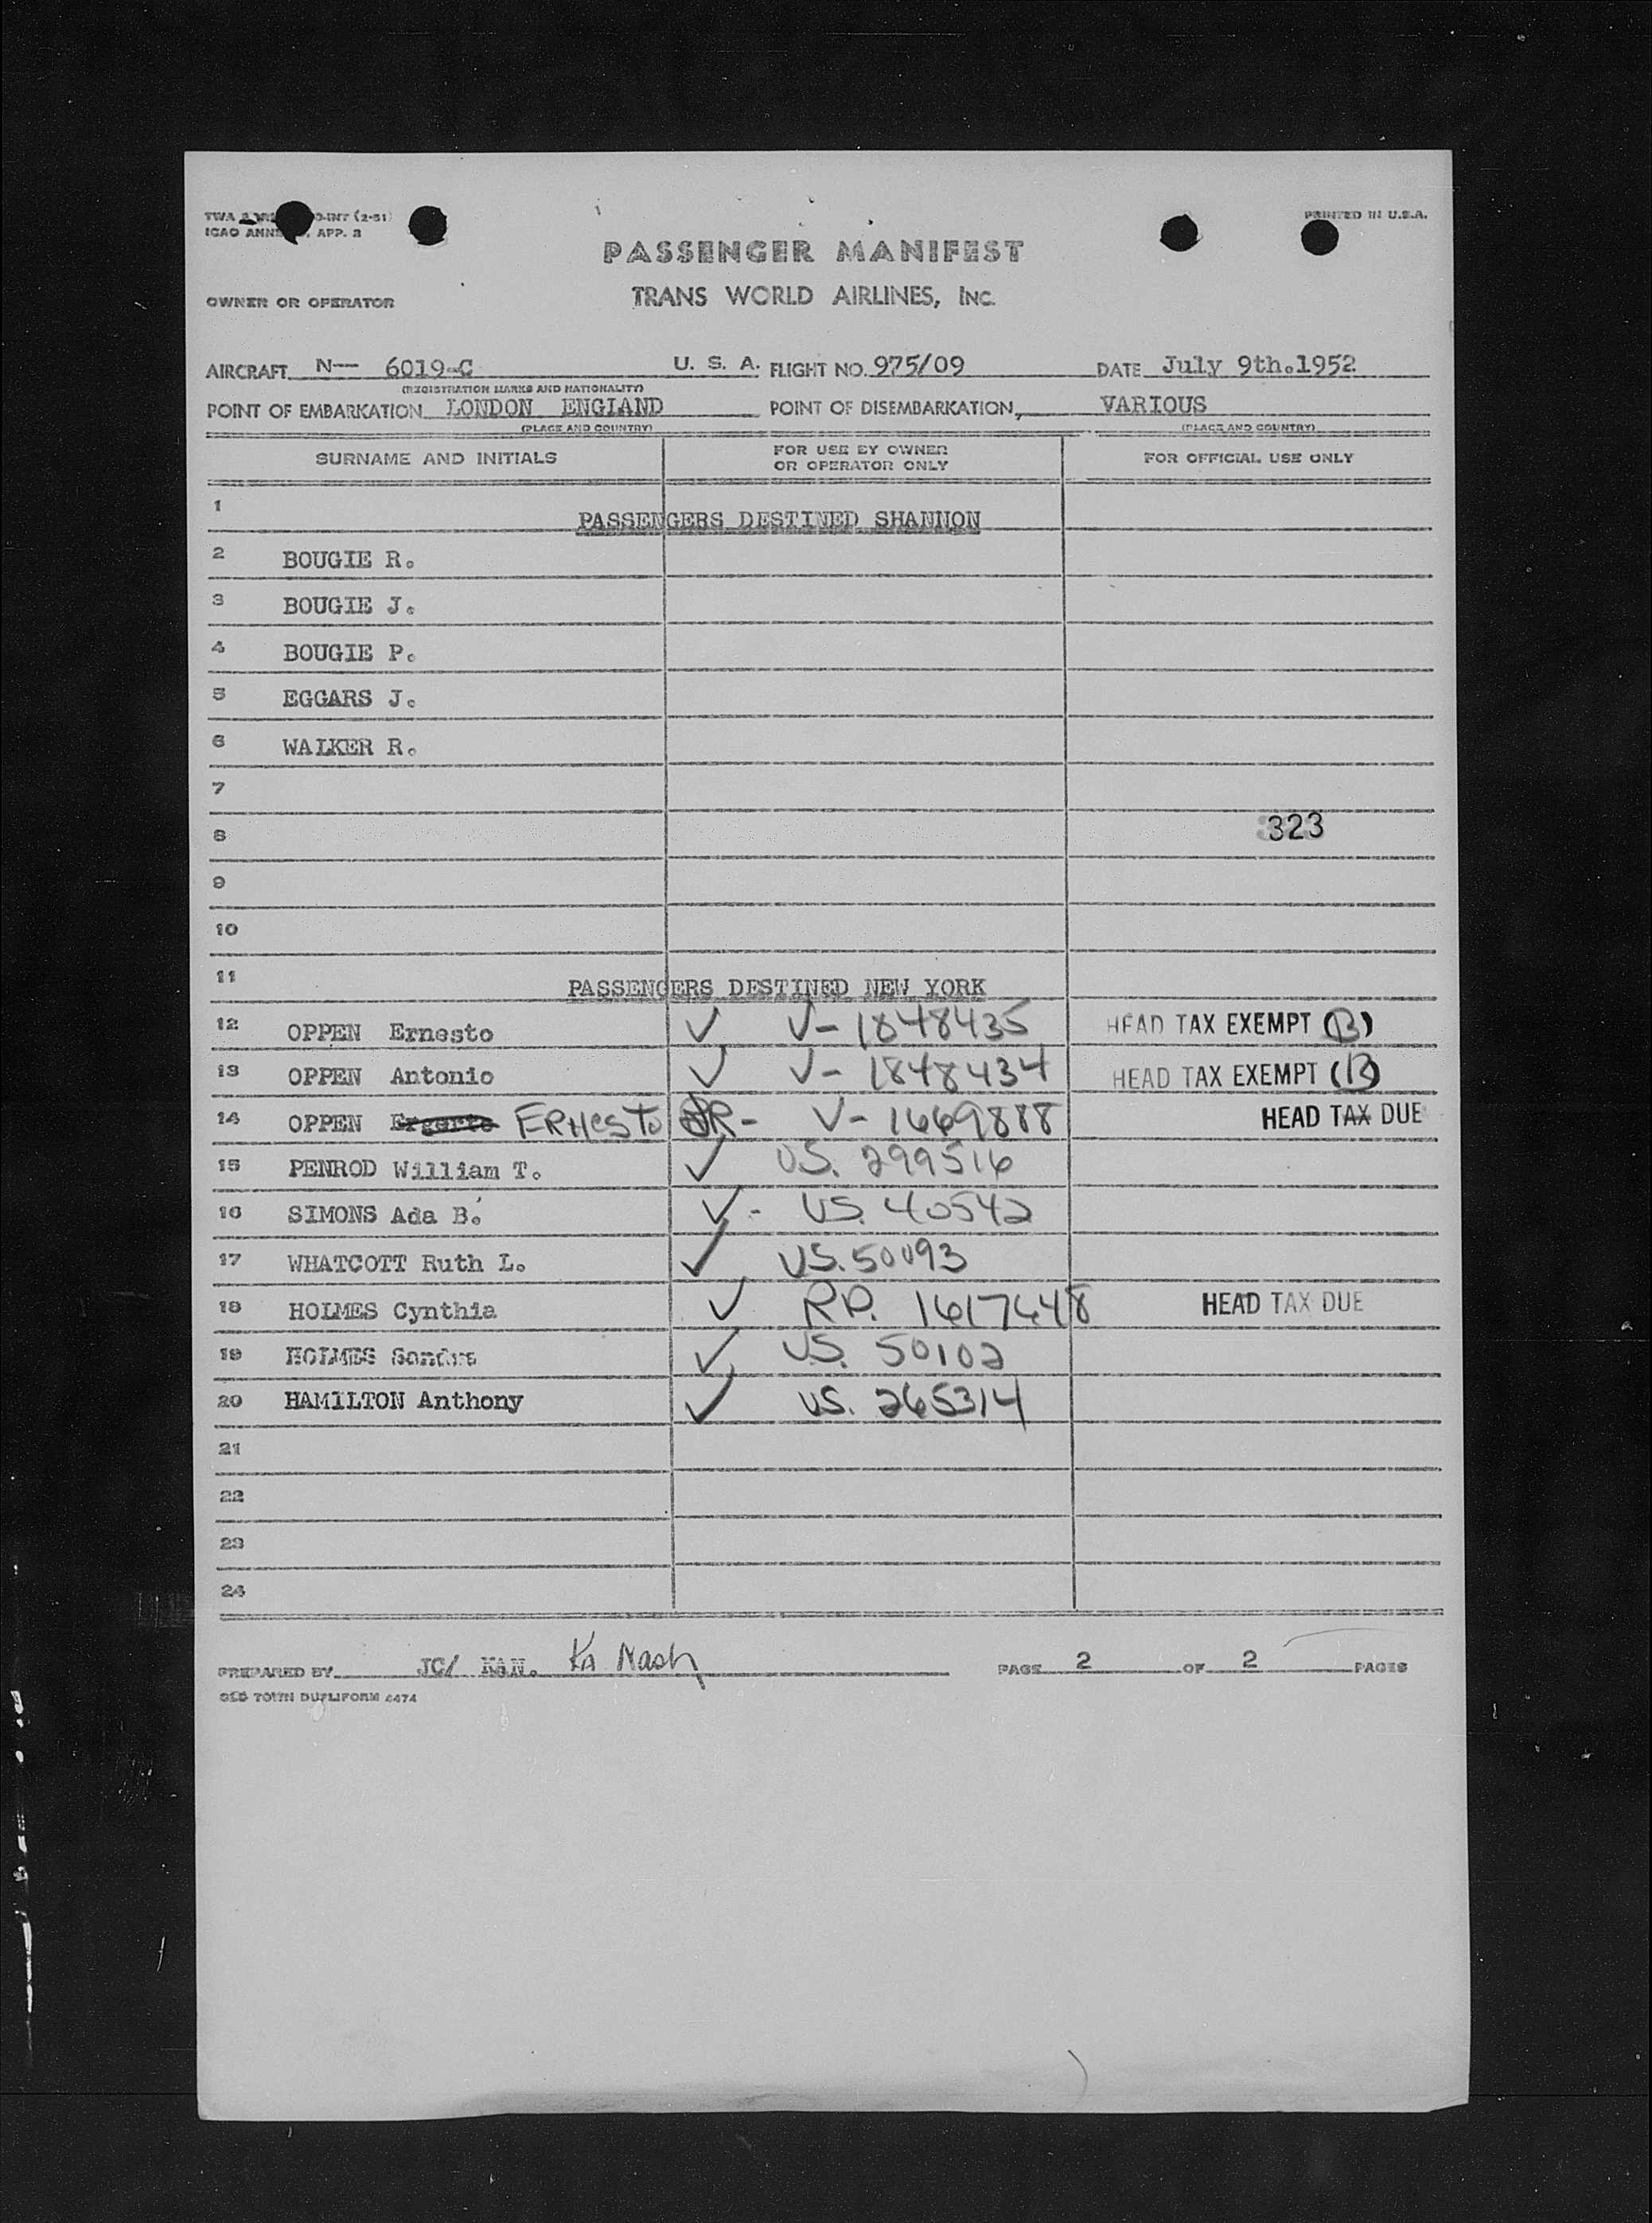 TWA (2-51)
PRINTED IN U.S.A.
ICAO APP. 2
PASSENGER MANIFEST
OWNER OR OPERATOR TRANS WORLD AIRLINES, INC.
AIRCRAFT N— 6019-C U. S. A. FLIGHT NO. 975/09 DATE July 9th.1952
(REGISTRATION MARKS AND NATIONALITY)
POINT OF EMBARKATION LONDON ENGLAND POINT OF DISEMBARKATION, VARIOUS
(PLACE AND COUNTRY) (PLACE AND COUNTRY)
SURNAME AND INITIALS FOR USE BY OWNER OR OPERATOR ONLY FOR OFFICIAL USE ONLY
1 PASSENGERS DESTINED SHANNON
2 BOUGIE R.
3 BOUGIE J.
4 BOUGIE P.
5 EGGARS J.
6 WALKER R.
7
8 323
9
10
11 PASSENGERS DESTINED NEW YORK
12 OPPEN Ernesto ✓ V-1848435 HEAD TAX EXEMPT (B)
13 OPPEN Antonio ✓ V-1848434 HEAD TAX EXEMPT (B)
14 OPPEN ERNESTO JR- V-1669888 HEAD TAX DUE
15 PENROD William T. ✓ U.S. 299516
16 SIMONS Ada B. ✓- US. 40542
17 WHATCOTT Ruth L. ✓ US. 50093
18 HOLMES Cynthia ✓ RP. 1617648 HEAD TAX DUE
19 HOLMES Sandra ✓ U.S. 50102
20 HAMILTON Anthony ✓ US. 265314
21
22
23
24
PREPARED BY JC/ KAN. Nash PAGE 2 OF 2 PAGES
OLD TOWN DUPLIFORM 4474